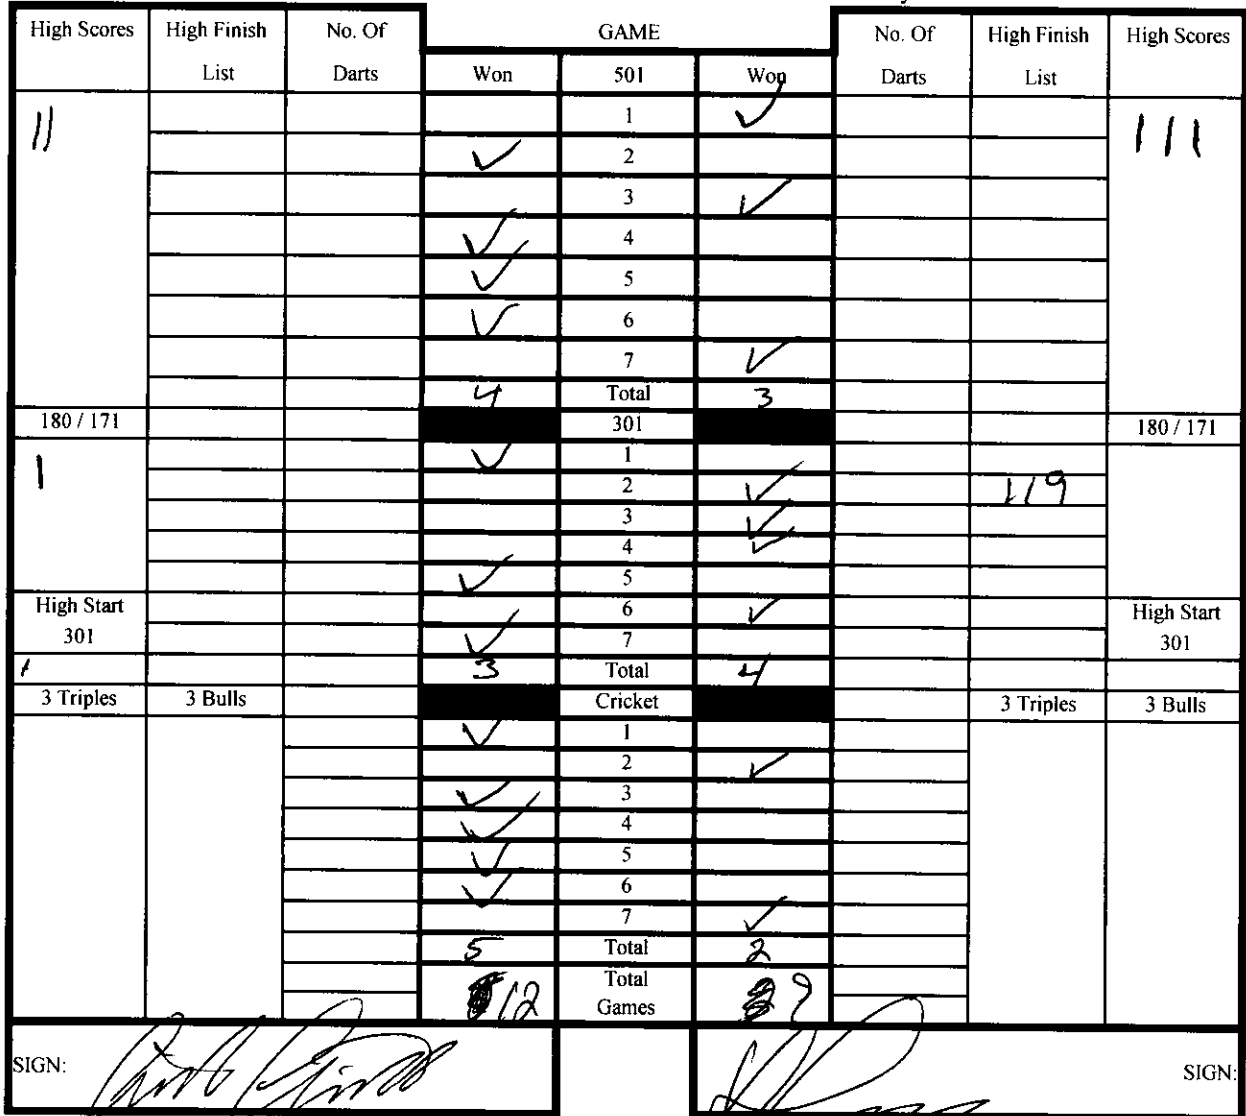 High Scores High Finish List No. Of Darts GAME No. Of Darts High Finish List High Scores
Won 501 Won
11 1 ✓ 111
✓ 2
3 ✓
✓ 4
✓ 5
✓ 6
7 ✓
4 Total 3
180 / 171 301 180 / 171
1 ✓ 1
2 ✓ 119
3 ✓
4 ✓
✓ 5
High Start 301 6 ✓ High Start 301
✓ 7
3 Total 4
3 Triples 3 Bulls Cricket 3 Triples 3 Bulls
✓ 1
2 ✓
✓ 3
✓ 4
✓ 5
✓ 6
7 ✓
5 Total 2
12 Total Games 9
SIGN: SIGN: